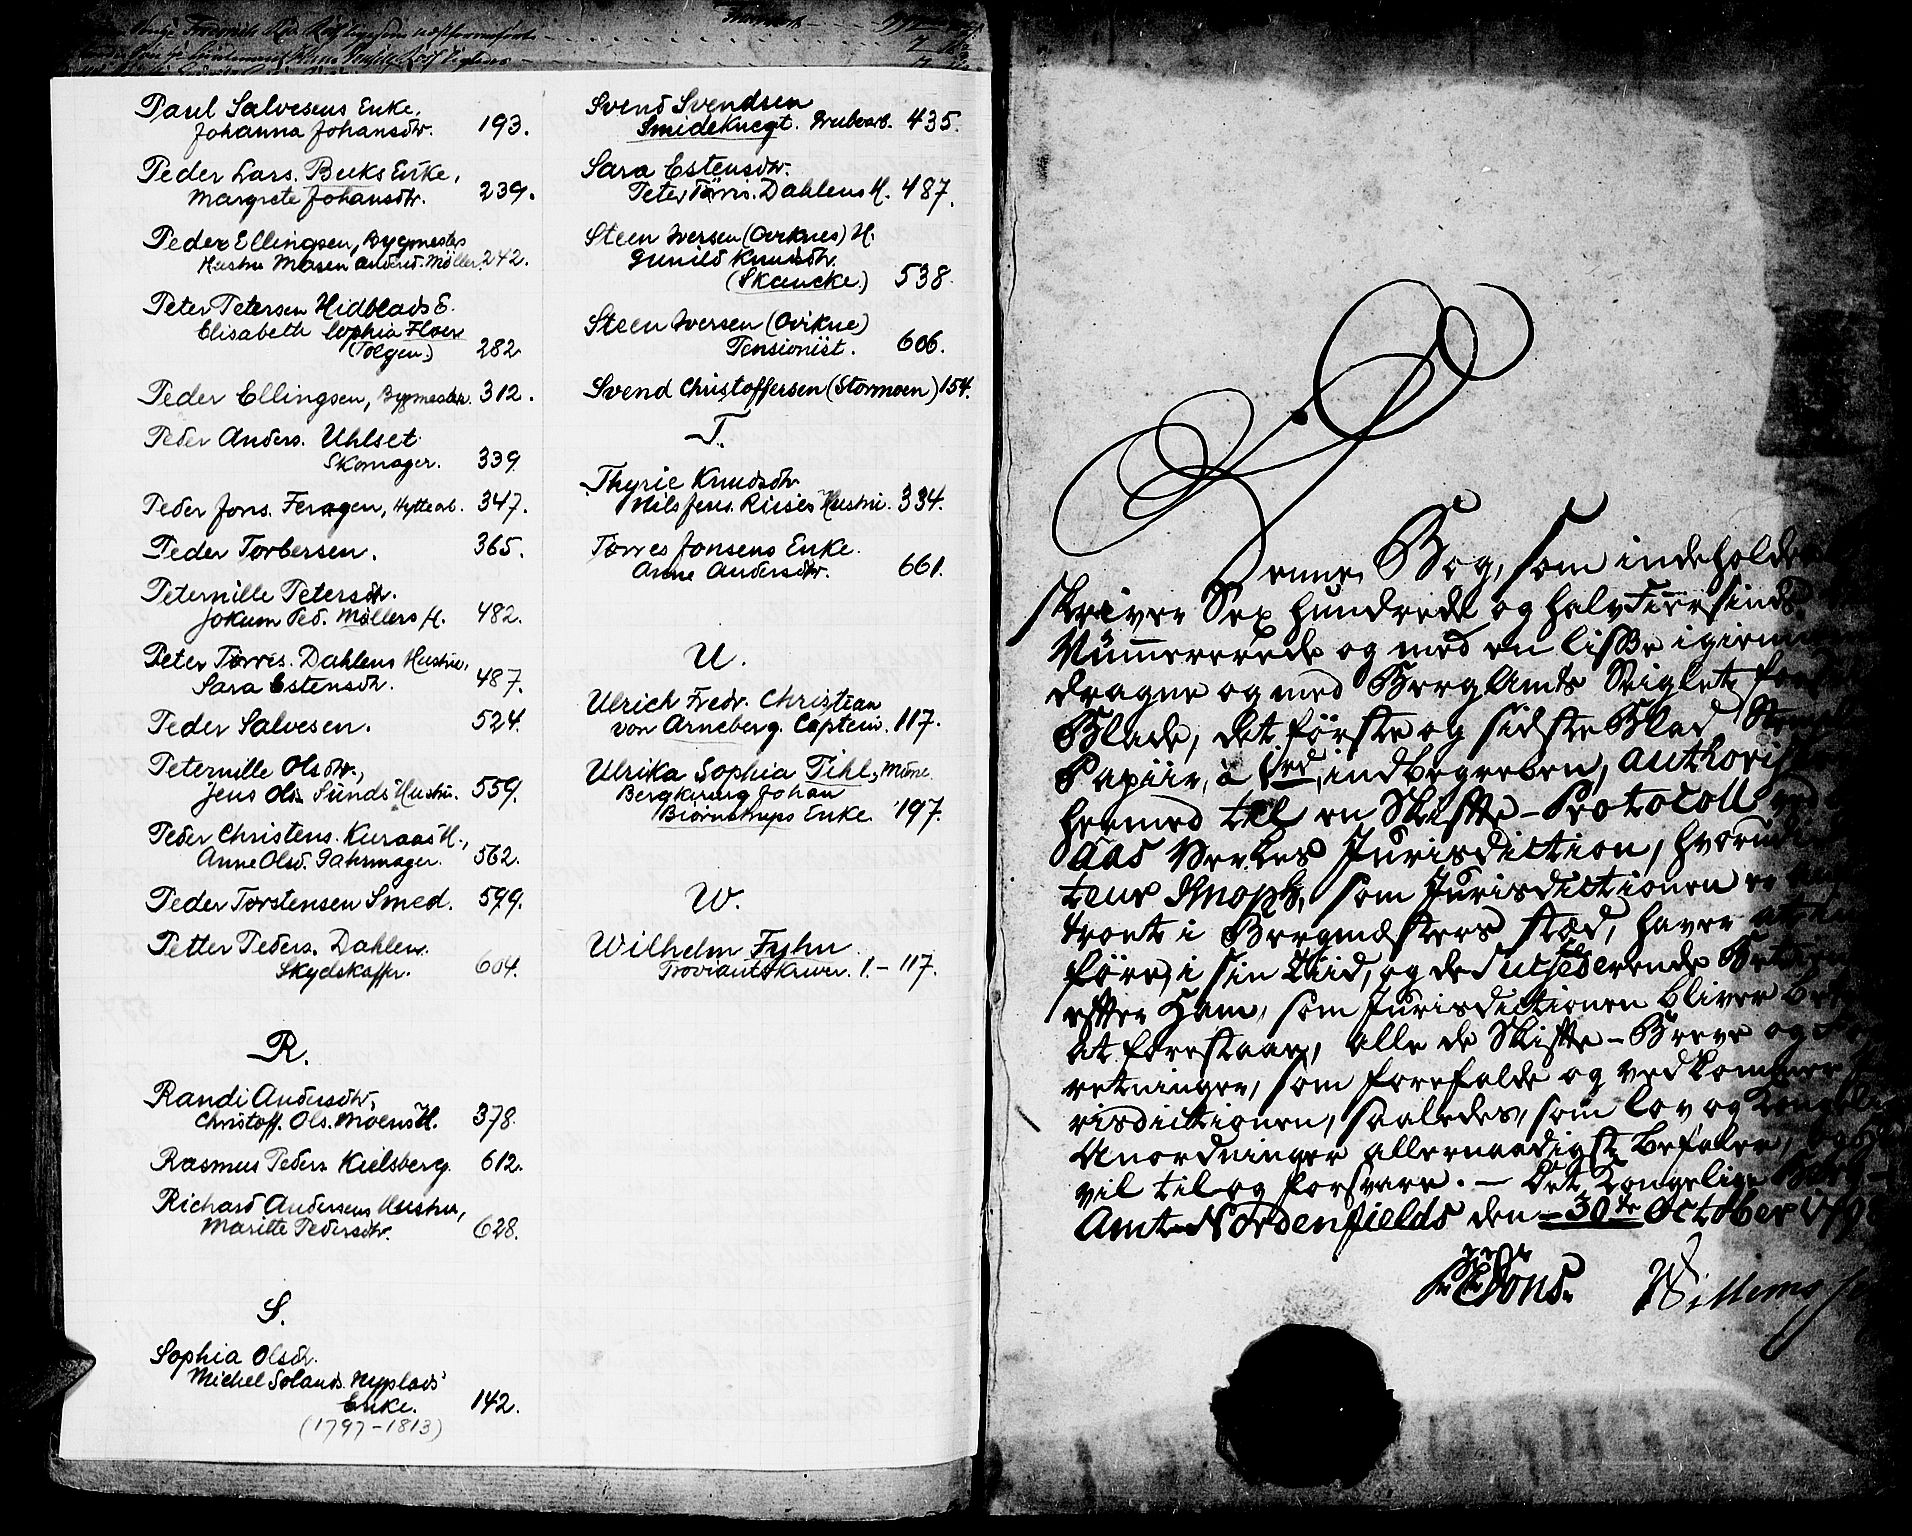 Paul Salvesens Enke,
Johanna Johansdtr. 193.
Peder Lars. Beeks Enke,
Margrete Johansdtr. 239.
Peder Ellingsen, Bygmesters
Hustru Maren Andersd. Møller 242.
Peter Petersen Hidblads E.
Elisabeth Sophia Floer
(Tolgen) 282.
Peder Ellingsen, Bygmester. 312.
Peder Anders. Uhlset
Skomager. 339
Peder Jons. Feragen, Hyttearb. 347.
Peder Torbersen. 365.
Peternille Petersdr.
Jokum Ped. Møllers H. 482.
Peter Tørris. Dahlens Hustru,
Sara Estensdtr. 487.
Peder Salvesen. 524.
Peternille Olsdtr.,
Jens Ols. Sunds Hustru. 559.
Peder Christens. Kuraas H.,
Anne Olsd. Gahrmager. 562.
Peder Torstensen Smed. 599.
Petter Peders. Dahlen
Skydskaffer. 604.
R.
Randi Andersdtr,
Christoff. Ols. Moens H. 378.
Rasmus Peders Kielsberg. 612.
Richard Andersens Hustru,
Maritte Pedersdtr. 628.
S.
Sophia Olsdr.
Michel Solands Nyplads
Enke. 142.
(1797-1813)
Svend Svendsen
Smideknegt. Grubearb. 435.
Sara Estensdtr.
Peter Tørris. Dahlens H. 487.
Steen Iversen (Oviknes) H.
Gunild Knudsdtr.
(Skancke.) 538.
Steen Iversen (Ovikne)
Pensionist. 606.
Svend Christoffersen (Stormoen) 154.
T.
Thyrie Knudsdtr
Nils Jens. Riises Hustru. 334.
Torres Jonsens Enke.
Anne Andersdtr. 661.
U.
Ulrich Fredr. Christian
von Arneberg. Captein. 117.
Ulrika Sophia Pihl,
Johan
Biørnstrups Enke. 197.
W.
Wilhelm Fyhn
Proviantskriver. 1.-117.
Denne Bog, som indeholder
skriver Sex hundrede og halvtiersinds
Nummererede og med en lisse igiennem
dragne og med BergAmts Seiglet
Blade, det første og sidste Blad
Papiir, a indbegreben, authoris
hermed till en Skifte-Protocoll
aas Verkes Jurisdiction, hvorudi
teur Knoph, som Jurisdictionen er
troet i Bergmesters sted, haver at
føre, i sin Tiid, og de succederende
efter Ham, som Jurisdictionen bliver
at forestaae, alle de Skifte-Breve og
retninger, som forefalde og vedkommer
risdictionen, saaledes, som lov og Kongelig
Anordninger allernaadigst befaler,
vil til og forsvare. - Det Kongelige Berg-
Amt Nordenfields den 30te October 179
Willems